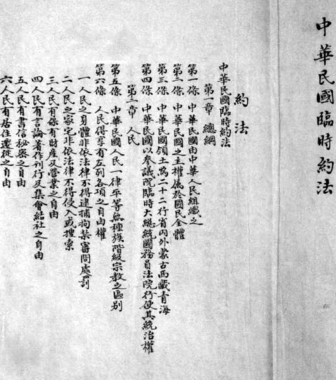 中華民國臨時約法
約法
中華民國臨時約法
第一章 總綱
第一條 中華民國由中華人民組織之
第二條 中華民國之主權屬於國民全體
第三條 中華民國領土為二十二行省內外蒙古西藏青海
第四條 中華民國以參議院臨時大總統國務員法院行使其統治權
第二章 人民
第五條 中華民國人民一律平等無種族階級宗教之區別
第六條 人民得享有左列各項之自由權
一人民之身體非依法律不得逮捕拘禁審問處罰
二人民之家宅非依法律不得侵入或搜索
三人民有保有財產及營業之自由
四人民有言論著作刊行及集會結社之自由
五人民有書信秘密之自由
六人民有居住遷徙之自由